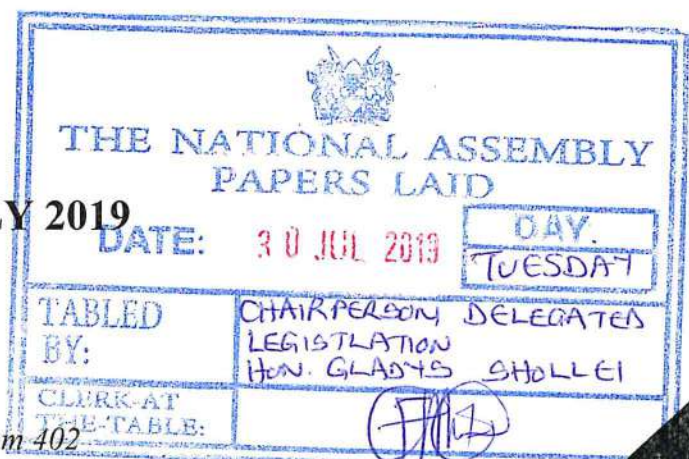 THE NATIONAL ASSEMBLY
PAPERS LAID
LY 2019
DATE: 30 JUL 2019
DAY.
TUESDAY
TABLED
BY:
CHAIRPERSON DELEGATED
LEGISTLATION
HON. GLADYS SHOLLEI
CLERK-AT
THE-TABLE:
m 402